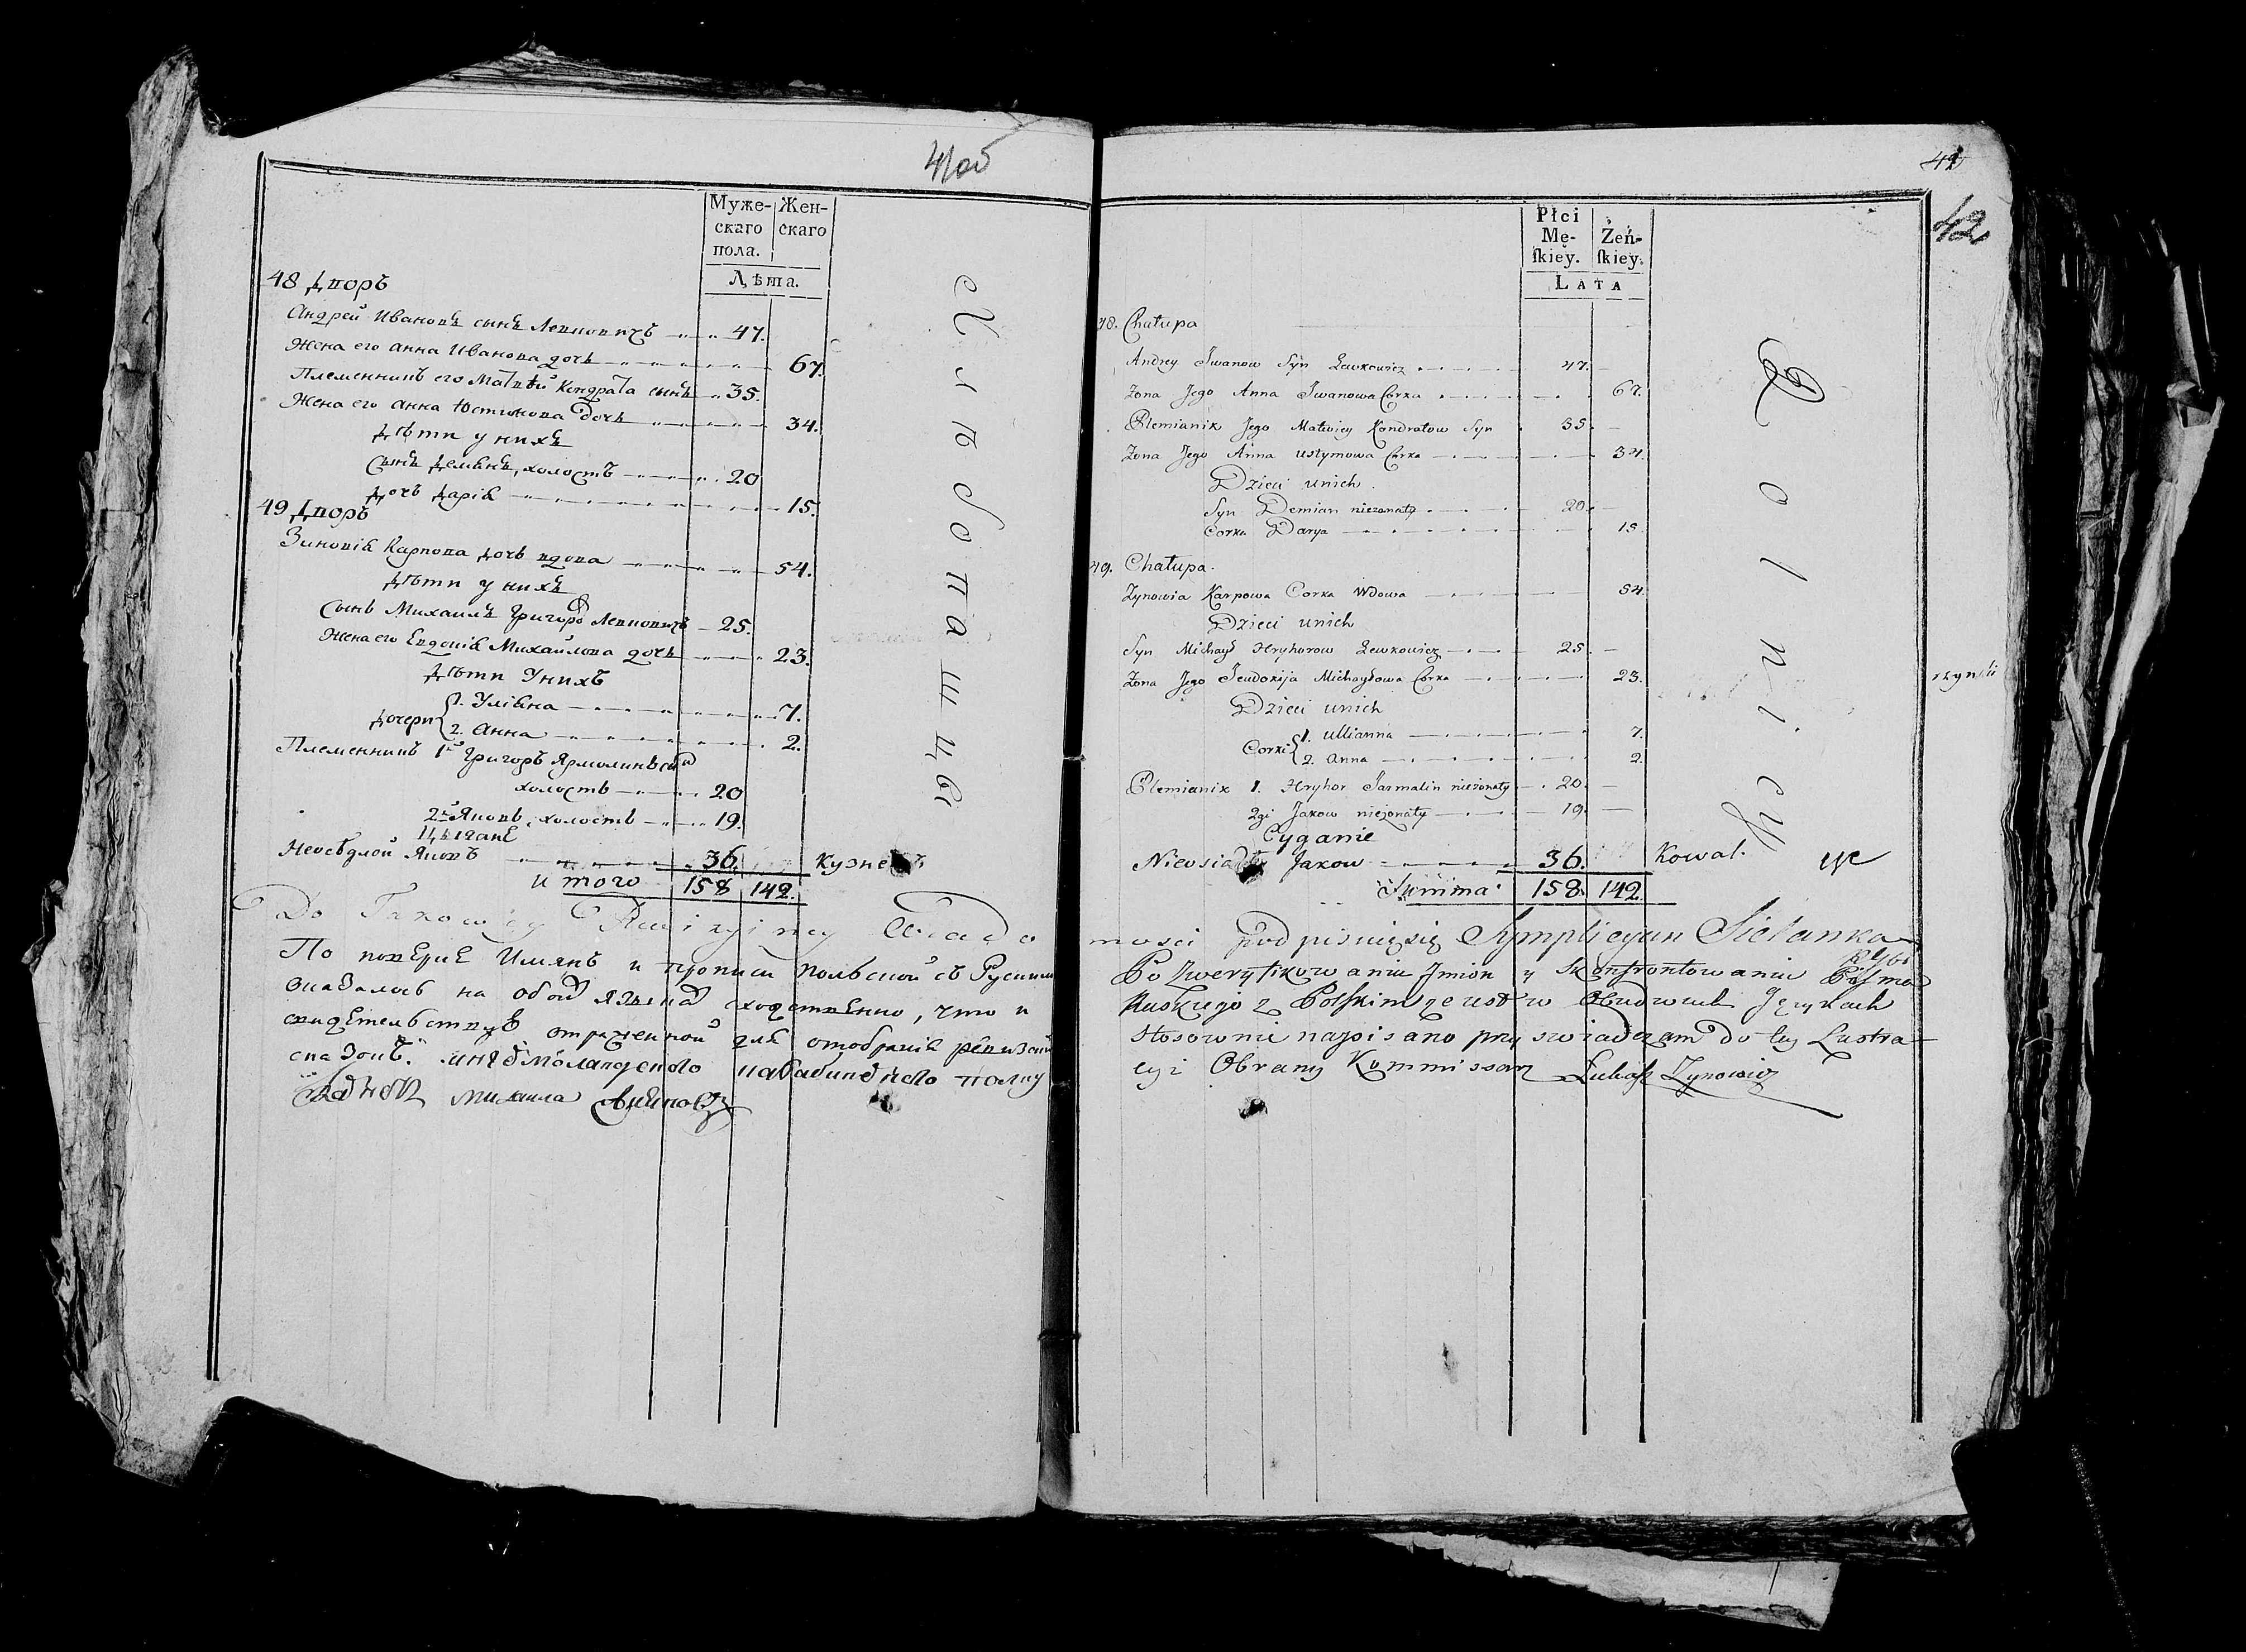 41об
Муже-
скаго
пола.
Жен-
скаго
Лѣта.
48 Дворъ
Андрей Ивановъ сынъ Левковичъ 47.
Жена его Анна Иванова дочь 67.
Племенникъ его Матвѣй Кондрата сынъ 35.
Жена его Анна Юстимова дочь 34.
Дѣти у нихъ
Сынъ Демьянъ, холостъ 20
Дочь Дарія 15.
49 Дворъ
Зиновія Карпова дочь вдова 54.
Дѣти у нихъ
Сынъ Михаилъ Григоров Левковичъ 25.
Жена его Евдокія Михайлова дочь 23.
Дѣти у нихъ
Дочери 1. Уліяна 7.
2. Анна 2.
Племенникъ 1й Григоръ Ярмолинъ сын
холостъ 20
2й Яковъ, холостъ 19.
Цыгане
Неосѣдлой Яковъ 36. Кузнецъ
Итого 158 142.
Хлѣбопашцы
До Takowey Rewizyiney Wiado
По повѣркѣ Имянъ и прописи польской съ Рускими
оказалось на обоих языках сходственно, что и
свидѣтельствуя отряженной для отобранія ревизских
сказокъ.
Михаила
42
42
Płci
Mę-
ſkiey.
Żeń-
ſkiey.
LATA
48. Chałupa
Andrey Iwanow Syn Lewkowicz 47.
Zona Jego Anna Iwanowa Corka 67.
Plemianik Jego Matwiey Kondratow Syn 35
Zona Jego Anna Ustymowa Corka 34.
Dzieci unich
Syn Demian nieżonaty 20.
Corka Darya 15.
49. Chałupa.
Zynowia Karpowa Corka Wdowa 54.
Dzieci unich
Syn Michaył Hryhorow Lewkowicz 25.
Zona Jego Jeudokija Michayłowa Corka 23.
Dzieci unich
Corki 1. Ullianna 7.
2. Anna 2.
Plemianik 1. Hryhor Jarmalin nieżonaty 20.
2gi Jakow nieżonaty 19.
Cyganie
Nieosiadły Jakow 36. Kowal.
Summa 158. 142.
Rolnicy
mosci podpisuię się Symplicyan Sielanka
Po Zweryfikowaniu Jmion y Skonfrontowaniu Pisma
Ruskiego z Polſkim ze ust w Obudwuch Językach
Stosownie napisano przyswiadczam do tey Lustra-
cyi Obrany Kommissarz Łukaſz Zynowicz